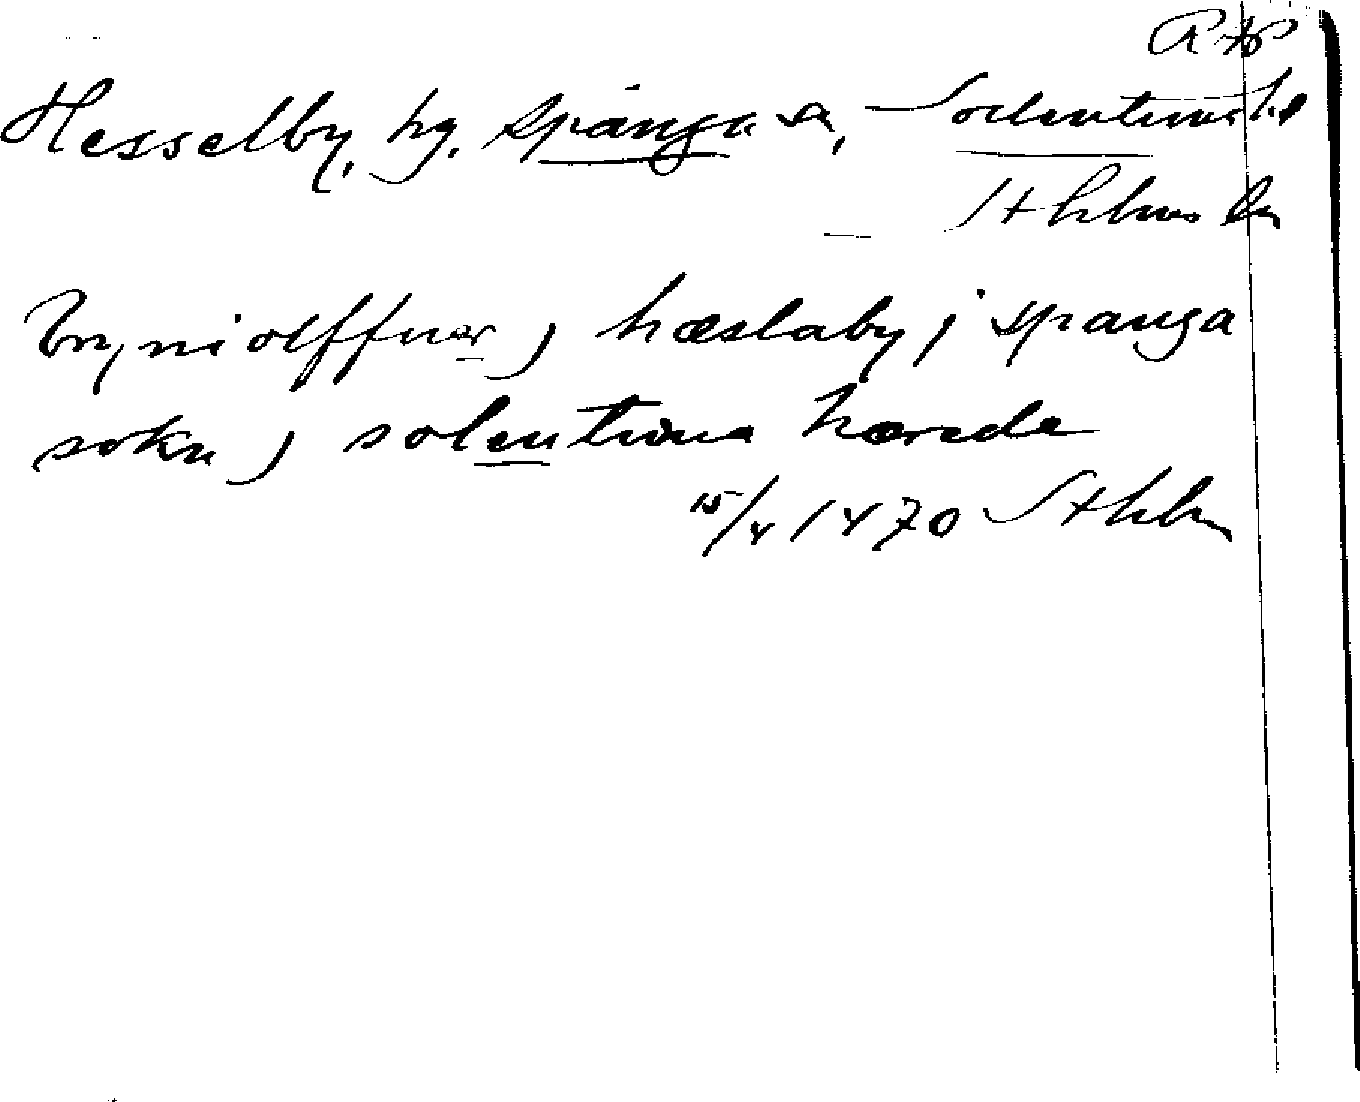 RAP
Hesselby, hg. Spånga sn, Sollentuna hd
Sthlms ln
Bryniolffuer j hæslaby j spanga
sokn j solentuna hærede
15/4 1470 Sthlm